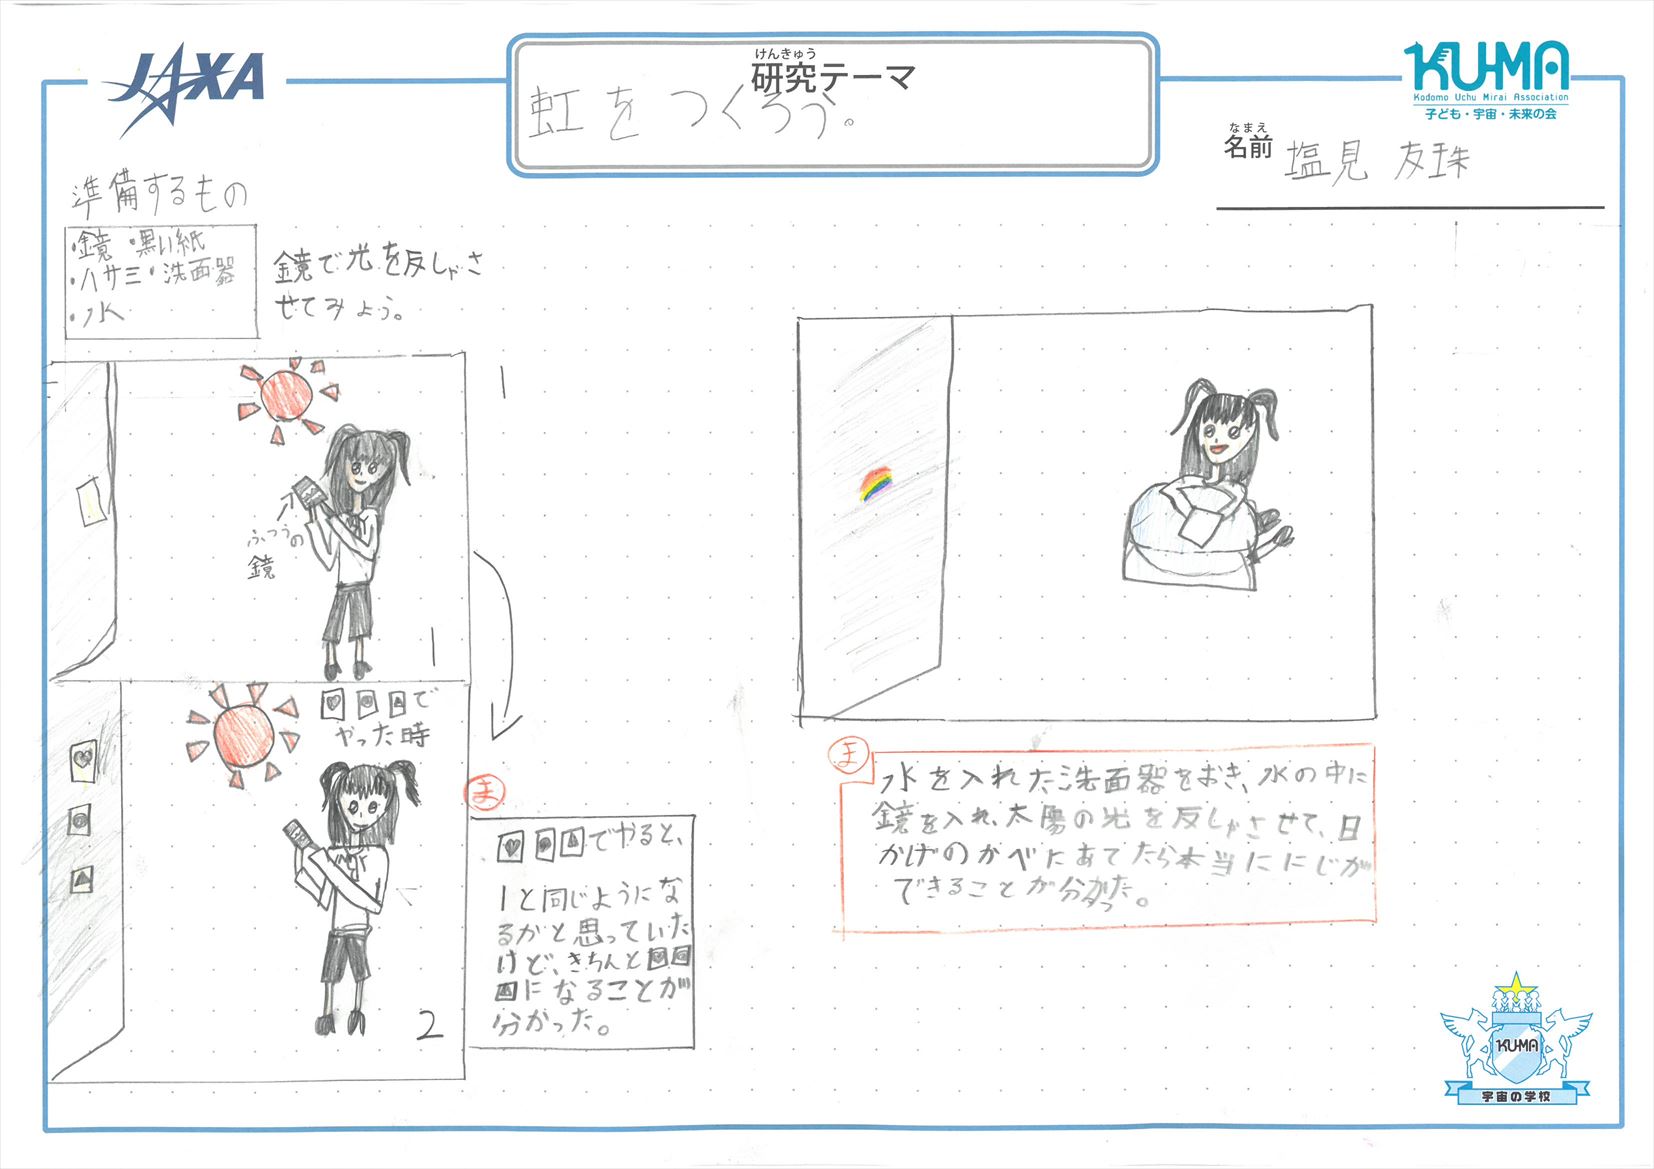 JAXA
けんきゅう
研究テーマ
虹をつくろう。
KU-MA
Kodomo Uchu Mirai Association
子ども・宇宙・未来の会
なまえ
名前 塩見 友珠
準備するもの
・鏡 ・黒い紙
・ハサミ・洗面器
・水
鏡で光を反しゃさ
せてみよう。
1
ふつうの
鏡
1
で
やった時
2
ま
でやると、
1と同じようにな
るかと思っていた
けど、きちんと
になることが
分かった。
ま
水を入れた洗面器をおき、水の中に
鏡を入れ、太陽の光を反しゃさせて、日
かげのかべにあてたら本当ににじが
できることが分かった。
KU-MA
宇宙の学校